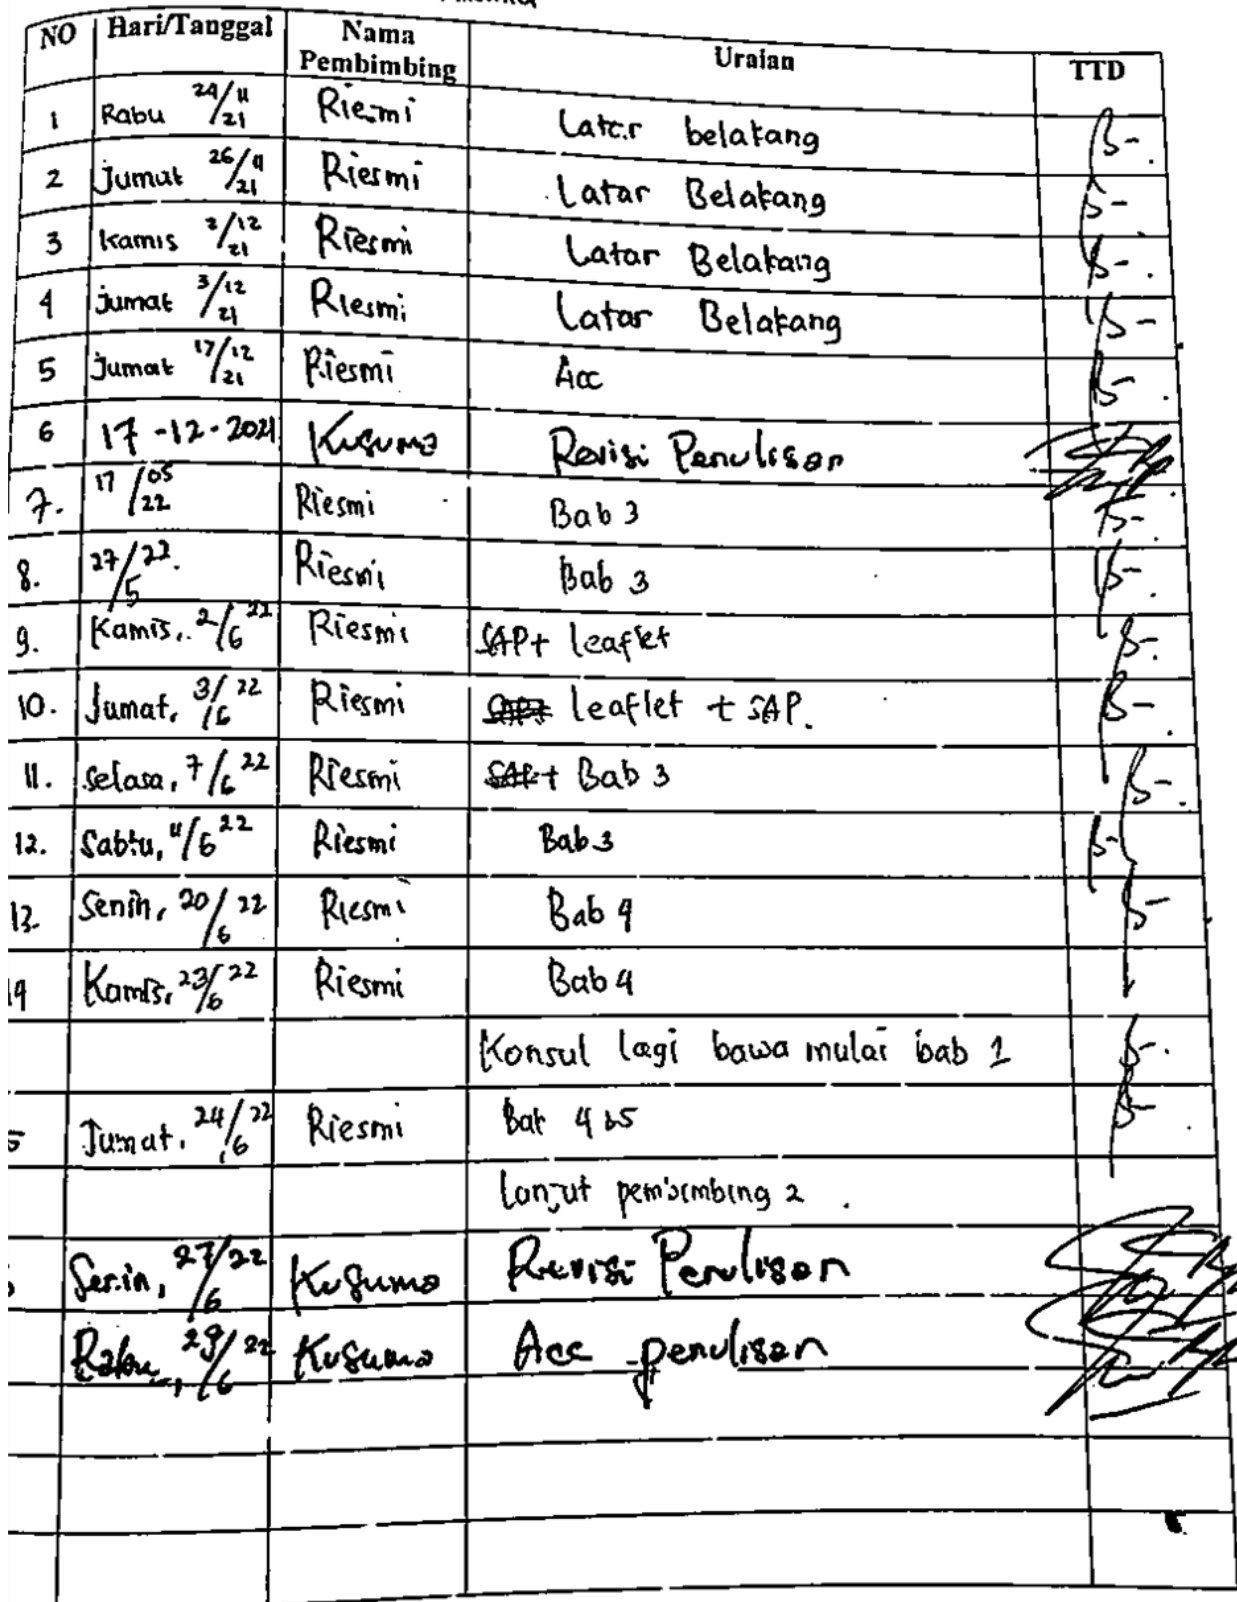 NO Hari/Tanggal Nama Pembimbing Uraian TTD
1 Rabu 24/11/21 Riesmi Latar belakang
2 Jumat 26/11/21 Riesmi Latar Belakang
3 Kamis 2/12/21 Riesmi Latar Belakang
4 Jumat 3/12/21 Riesmi Latar Belakang
5 Jumat 17/12/21 Riesmi Acc
6 17-12-2021 Kusuma Revisi Penulisan
7. 17/05/22 Riesmi Bab 3
8. 27/5/22. Riesmi Bab 3
9. Kamis, 2/6 22 Riesmi SAP+ leaflet
10. Jumat, 3/6 22 Riesmi leaflet + SAP.
11. Selasa, 7/6 22 Riesmi Bab 3
12. Sabtu, 11/6 22 Riesmi Bab 3
13. Senin, 20/6 22 Riesmi Bab 4
14 Kamis, 23/6 22 Riesmi Bab 4
Konsul lagi bawa mulai bab 1
5 Jumat, 24/6 22 Riesmi Bab 4 5
lanjut pembimbing 2.
Senin, 27/6 22 Kusuma Revisi Penulisan
Rabu, 29/6 22 Kusuma Acc penulisan